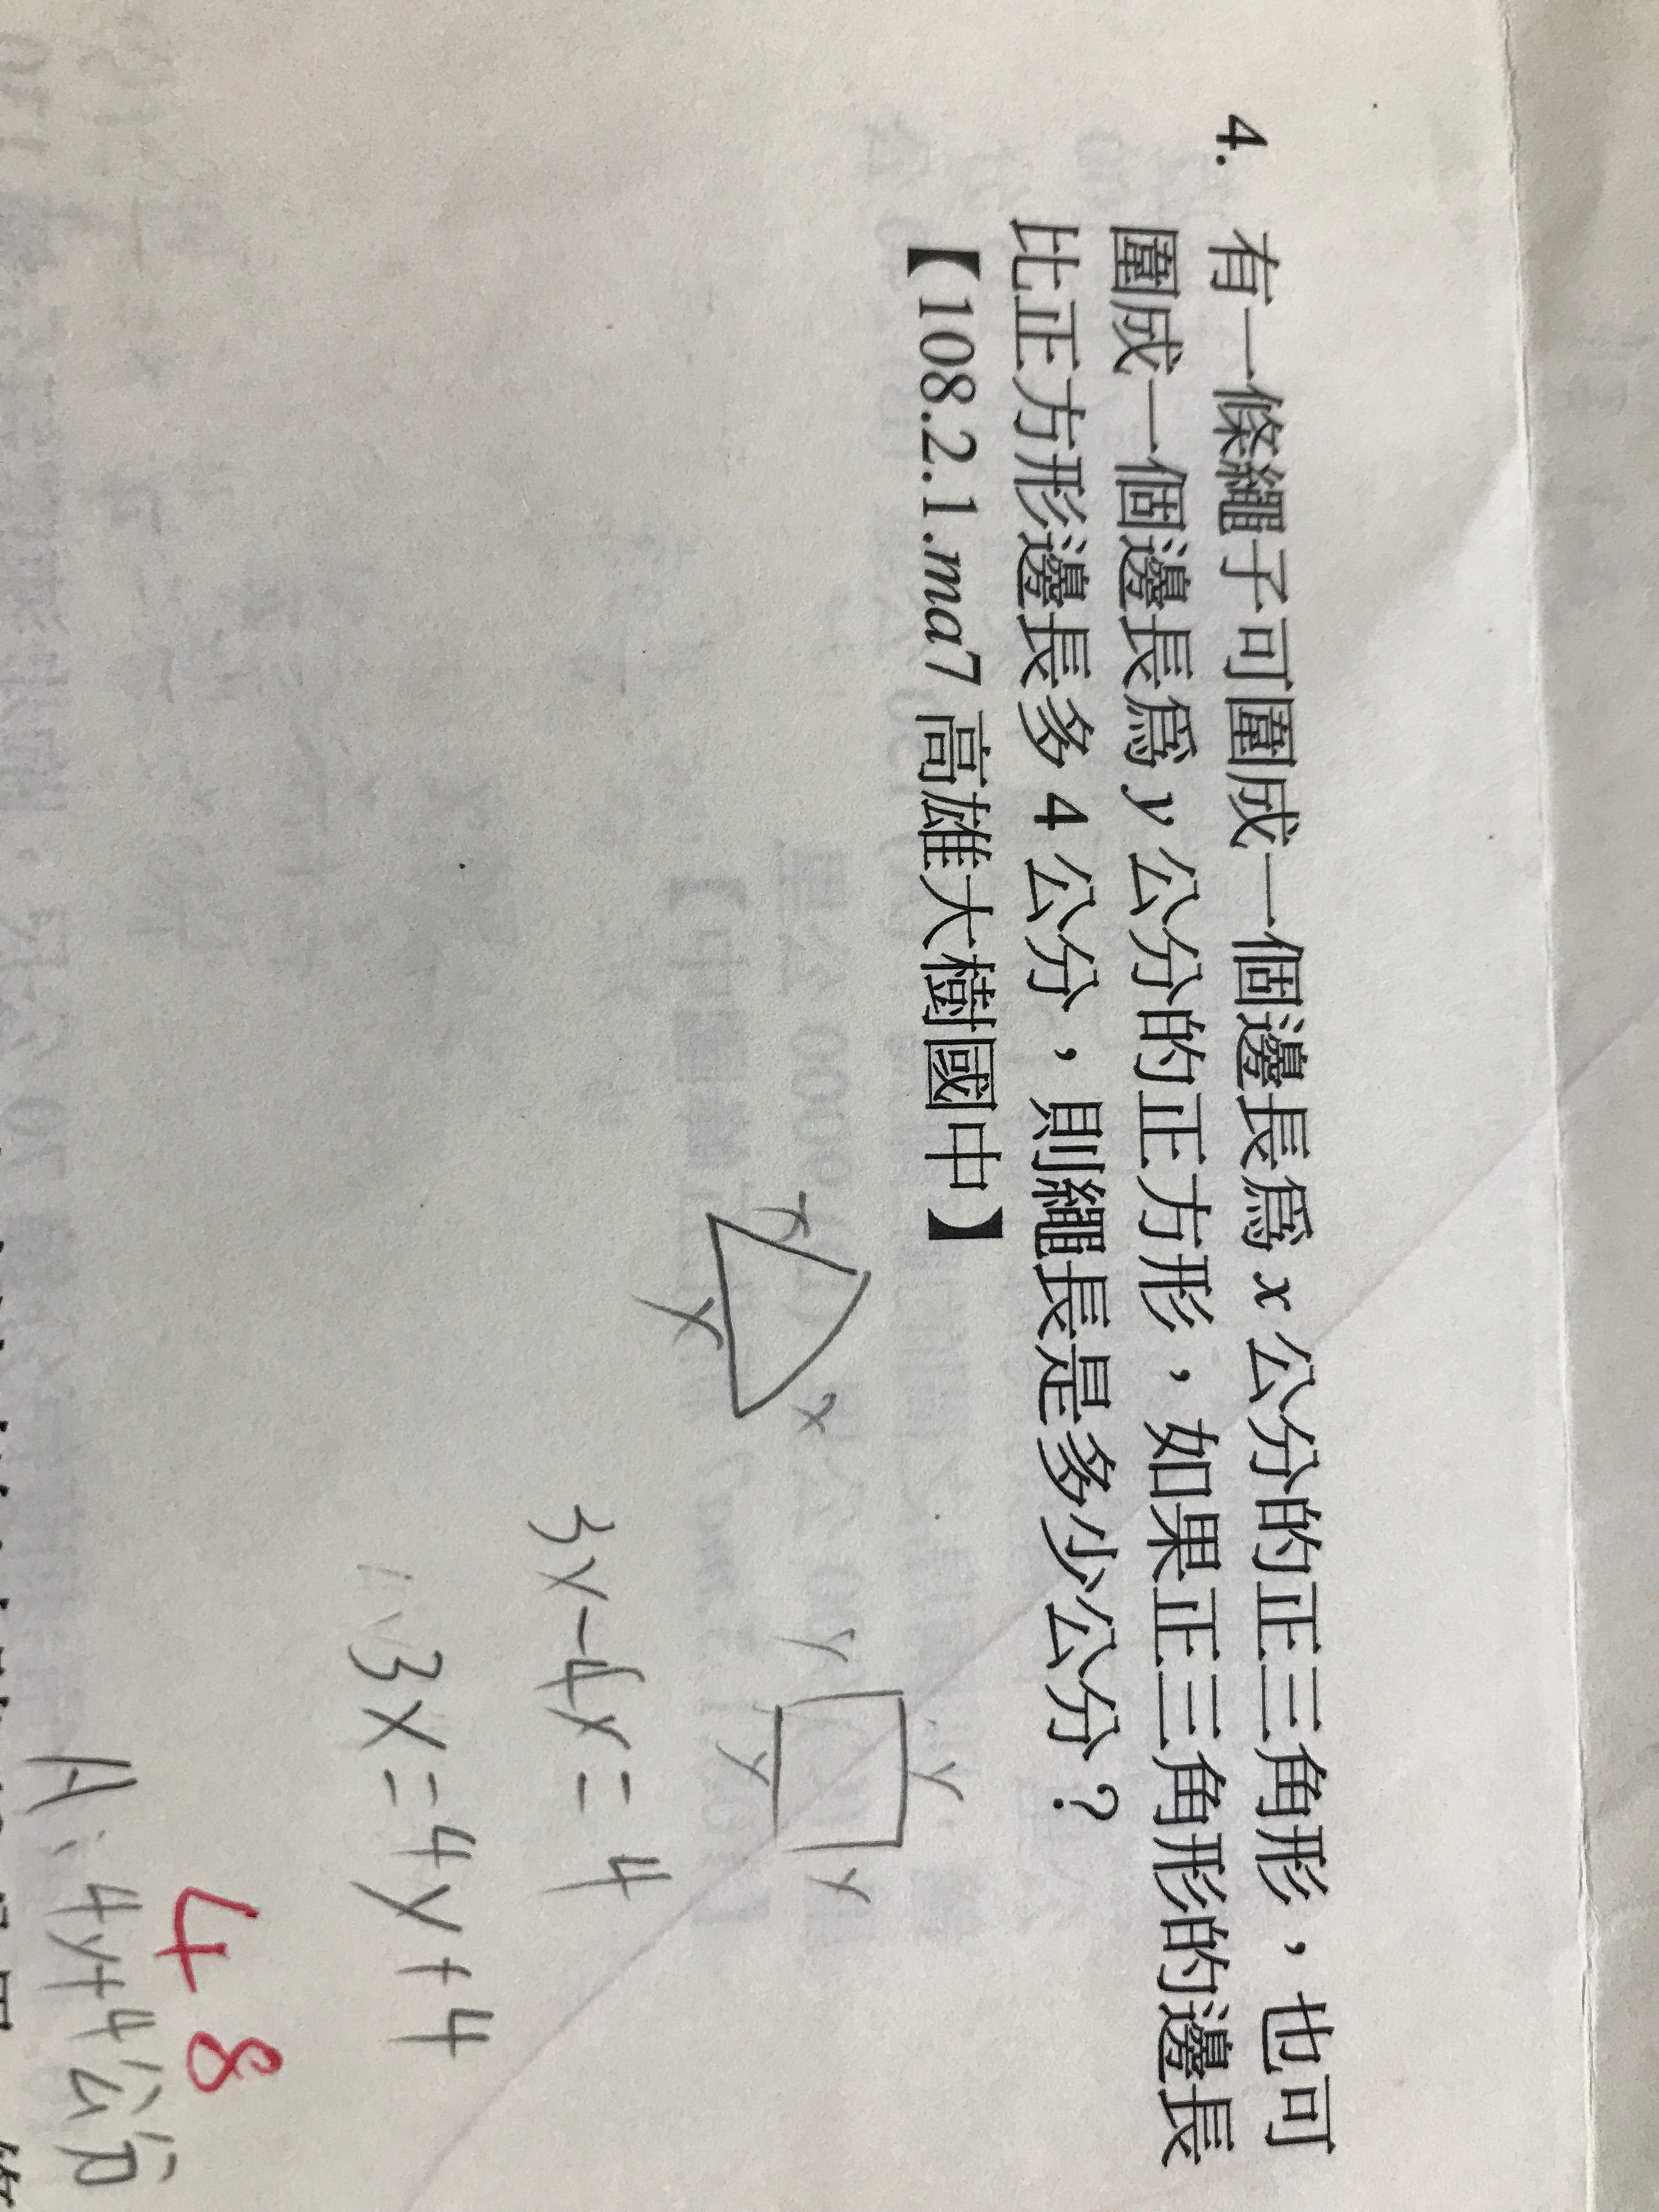 4. 有一條繩子可圍成一個邊長為 x 公分的正三角形，也可
圍成一個邊長為 y 公分的正方形，如果正三角形的邊長
比正方形邊長多 4 公分，則繩長是多少公分？
【108.2.1.ma7 高雄大樹國中】
x
x
x
y
y
y
y
3x-4x=4
3x=4y+4
48
A:4y+4公分